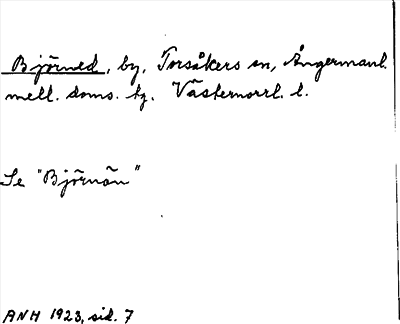 Björned, by, Torsåkers sn, Ångermanl.
mell. doms. tg. Västernorrl. l.
Se "Björnön"
ANH 1923, sid. 7